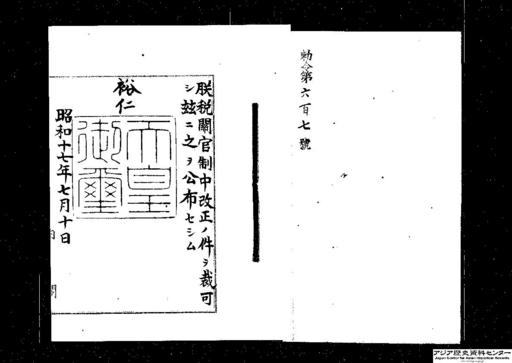 勅令第六百七號
朕税關官制中改正ノ件ヲ裁可
シ茲ニ之ヲ公布セシム
裕仁
天皇
御璽
昭和十七年七月十日
アジア歴史資料センター
Japan Center for Asian Historical Records